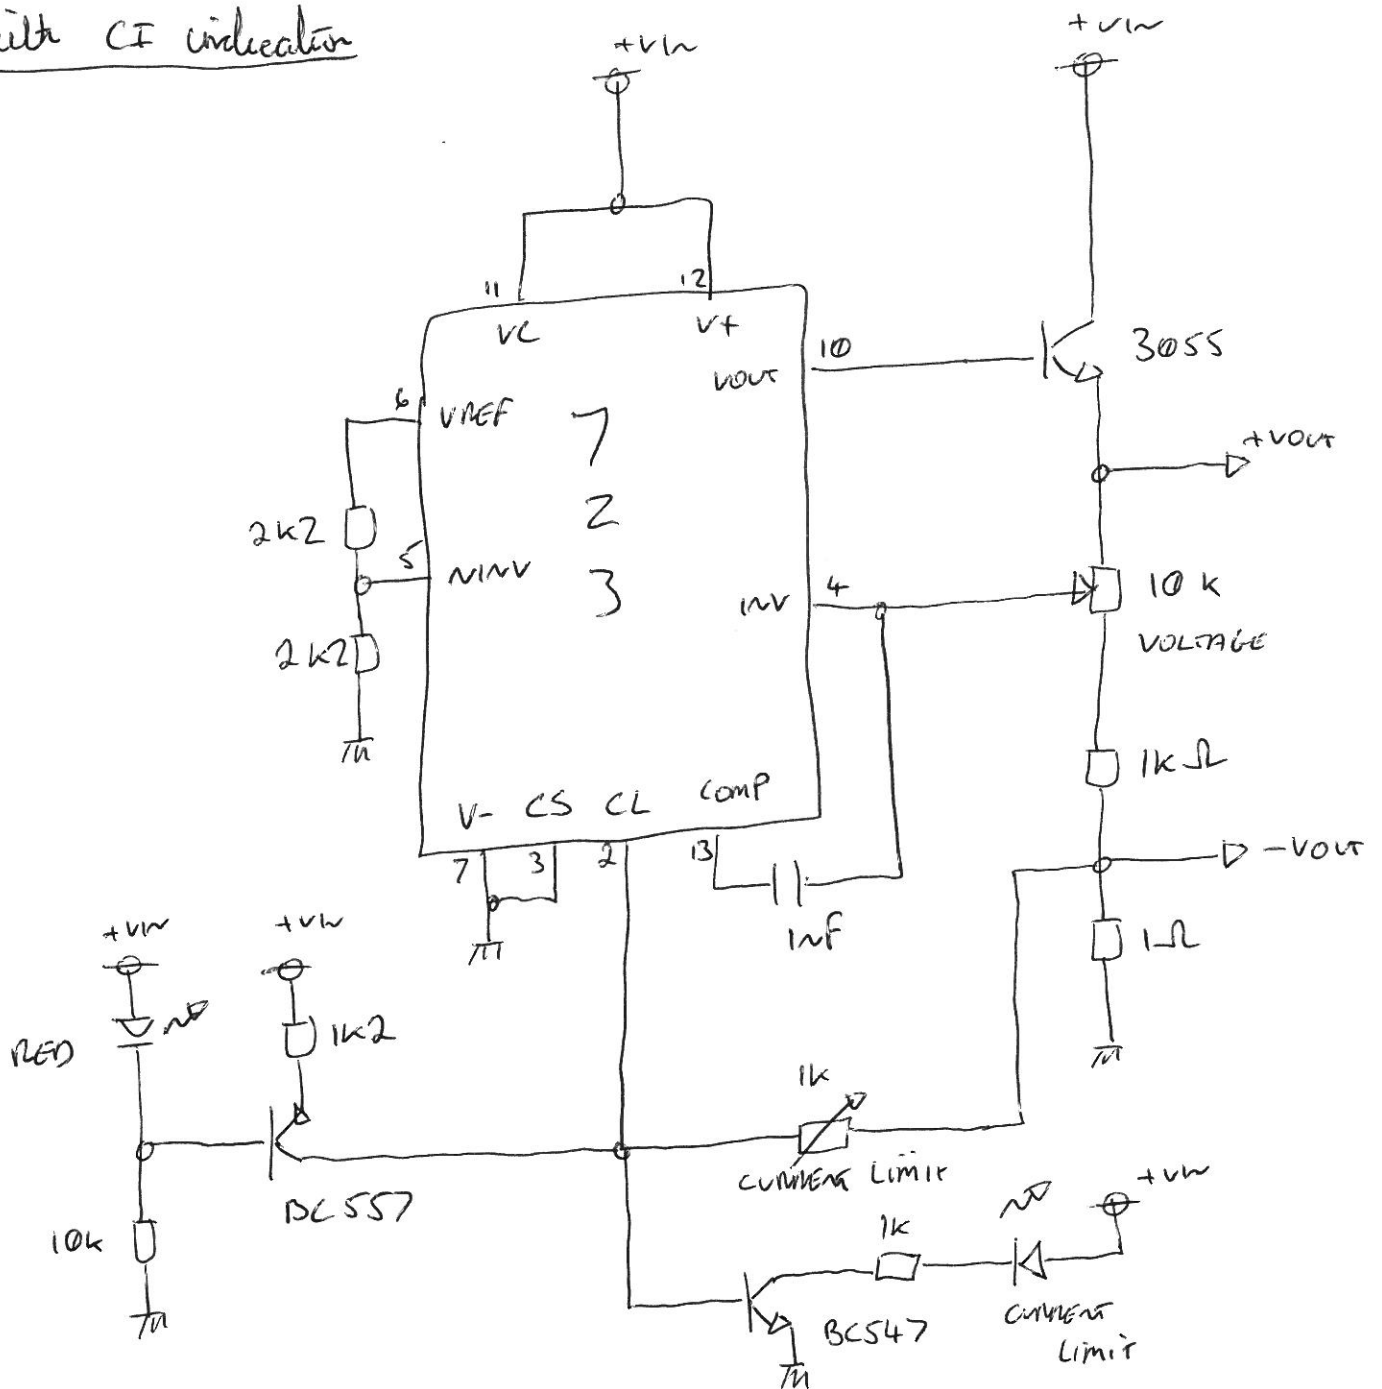 with CI indication
+VIN
+VIN
11
12
VC
V+
VOUT
10
3055
6
VREF
7
2
3
+VOUT
2k2
5
NINV
INV
4
10k
VOLTAGE
2k2
1kΩ
V-
CS
CL
COMP
7
3
2
13
-VOUT
1NF
1Ω
+VIN
+VIN
RED
1k2
1k
CURRENT LIMIT
BC557
10k
+VIN
1k
BC547
CURRENT
LIMIT